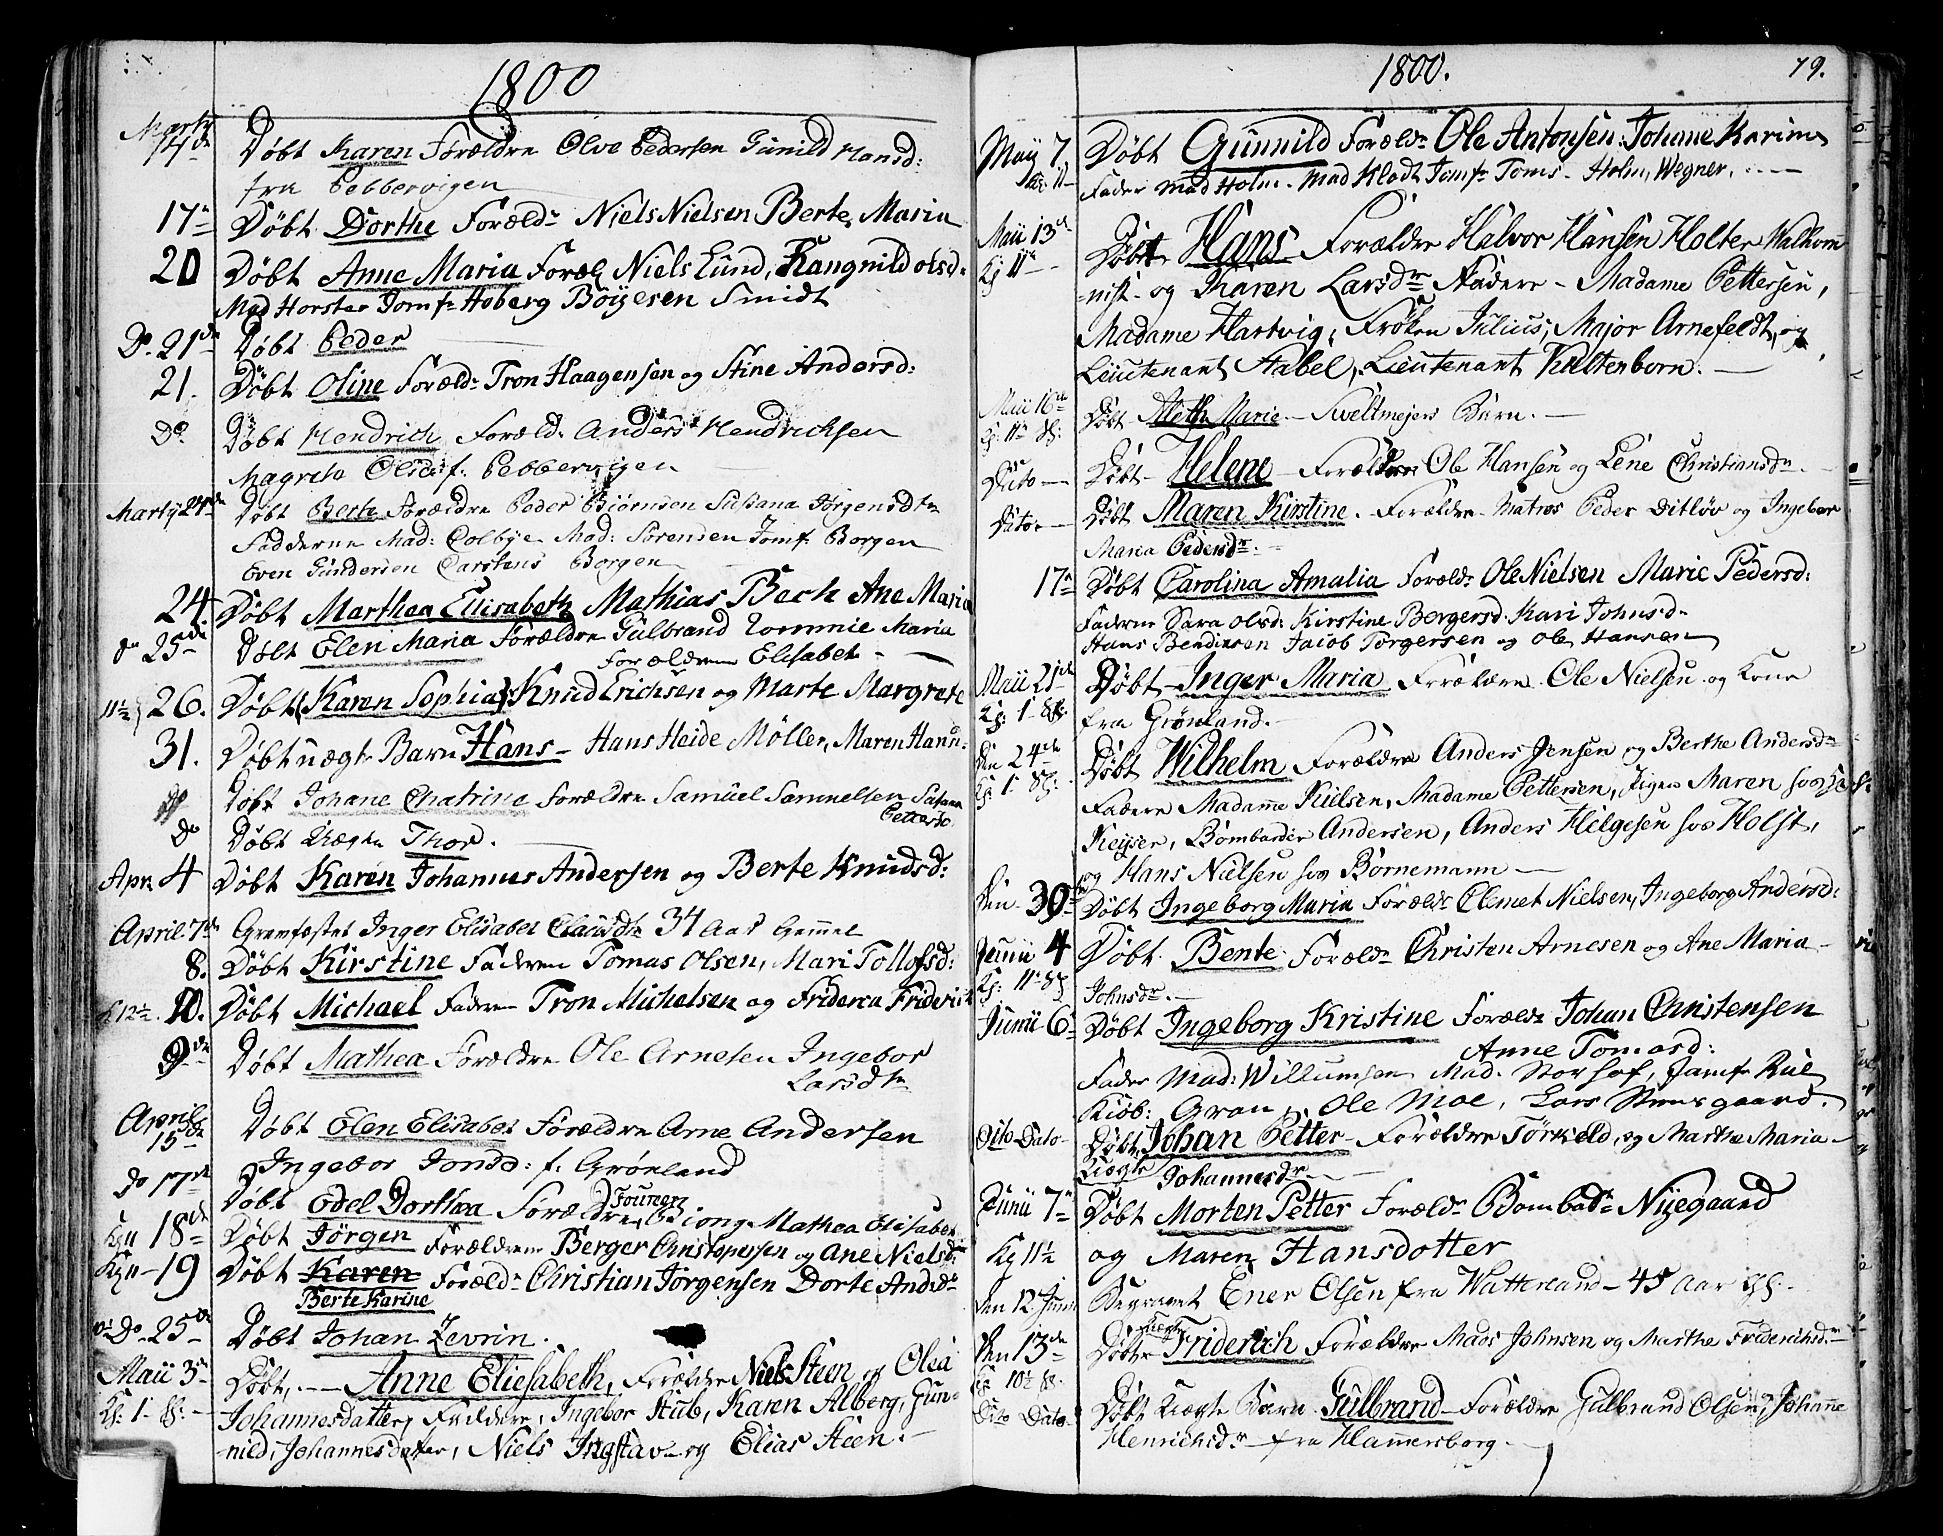 1800
Marty
14de Døbt Karen Forældre Olve Pedersen Gunild Hansd:
fra Pebbervigen
17n Døbt Dorthe Foræld Niels Nielsen Berte Maria
20 Døbt Anne Maria Foræl Niels Lund, Rangnild olsd.
Mad Horster Jomfr Hoberg Böiyesen Smidt
Do. 21de Døbt Peder
21. Døbt Oline Foræld Tron Haagensen og Stine Andersd:
Do Døbt Hendrich Foræld: Anders Hendrichsen
Magrete Olsd f. Pebbervigen
Marty 24de Døbt Berte Forældre Peder Biörnsen Susana Jørgensdtr
Fadderne Mad: Colbye Mad: Sørensen Jomf: Borgen
Even Gundersen Carstens Borgen
24. Døbt Marthea Elisabeth Mathias Bech Ane Maria
do 25de Døbt Elen Maria Forældre Gulbrand Maria
Forældrene Elisabet
11½ 26. Døbt Karen Sophia Knud Erichsen og Marte Margrete
31. Døbt uægte Barn Hans - Hans Heide Möller, Maren Hansd:
Døbt Johane Chatrine Forældre Samuel Samuelsen Susana
Pettersd
Do Døbt Uægte Thor.
Apr. 4 Døbt Karen Johannes Andersen og Berte Knudsd:
April 7de Gramfæstet Inger Elisabet 34 Aar Gammel
8. Døbt Kirstine Fadren Tomas Olsen, Mari Tollofsd:
k 12½. 10. Døbt Michael Fadren Tron Michelsen og Friderca Friderich
9de Døbt Mathea Forældre Ole Arnesen Ingebor
Larsdtr
April
15de Døbt Elen Elisabet Forældre Arne Andersen
Ingebor Jonsd: f. Grønland
do 17de Døbt Edel Dorthea Forældre Mathea Elisabet
Kg 11 18de Døbt Jörgen Forældrene Berger Christophersen og Ane Nielsd
Kg 11 19 Døbt Karen Foræld Christian Jörgensen Dorte Andsdr
Berte Karine
Do 25de Døbt Johan Zevrin.
Maii 3de Døbt, - Anne Eliesabeth, Forældre Niels Steen og Olea
Kl: 1 Johannesdatter, Faddere, Ingebor Stub, Karen Alberg, Gun-
nild, Johannesdatter, Niels Ingstav og Elias Steen.
1800. 79.
Maij 7 Døbt Gunnild Foræld Ole Antonsen: Johane Karine
Kl: 11 Fader Mad Holm. Mad Klodt Jomfr Toms. Holm, Wegner.
Maii 13de Døbt Hans Forældre Halvor Hansen Holter
Kl 11 -nist- og Karen Larsdr Fadere - Madame Pettersen,
Madame Hartvig, Frøken Julius, Major Arnefeldt, og
Lieutenant Stabel, Lieutenant Kaltenborn.
Maii 16de Døbt Aleth Marie - Svellmejers Barn.
Dito Døbt Helene Forældre Ole Hansen og Lene Christiansdr.
Dito Døbt Maren Kirstine. Forældre Matros Peder Ditløv og Ingebor
Maria Pedersdr.
17n Døbt Carolina Amalia Foræld Ole Nielsen Marie Pedersd:
Faderne Sara olsd: Kirstine Bergersd: Kari Johnsd
Hans Bendixsen Jacob Torgersen og ole Hansen
Maii 21de Døbt Inger Maria Forældre Ole Nielsen og Kone
Kl: 1 fra Grønland.
Den 24de Døbt Wilhelm Forældre Anders Jensen og Berthe Andersdr
Kl: 1 Fadere Madamme Nielsen, Madame Pettersen, Pigen Maren hos
Keyser, Bombarder Andersen, Anders Helgesen hos Holst,
og Hans Nielsen hos Börnemann
Den 30te Døbt Ingeborg Maria Foræld Clemet Nielsen, Ingeborg Andersd:
Junii 4 Døbt Bente Foræld Christen Arnesen og Ane Maria
Kl: 11 Johnsdr.
Junii 6 Døbt Ingeborg Kristine Foræld Johan Christensen
Anne Tomasd:
Fader Mad: Willumsen Mad. Storhof, Jomfr Rul
Kiöb: Gran, Ole Moe, Lars Stensgaard.
Dito Dato Døbt Johan Petter - Forældre Törkeld, og Marthe Maria
Uægte Johannesdr
Junii 7 Døbt Morten Petter Foræld Bombadr Nyegaard
Kg 11½ og Maren Hansdotter
den 12 Junii Begravet Ener Olsen fra Watterland - 45 Aar
Uægte
Den 13de Døbt Friderich Forældre Mads Johnsen og Marthe Friderichsdr
Kl 10½
Dito Dato Døbt Uægte Barn Gulbrand Forældre Gulbrand Olsen, Johanne
Henrichsdr fra Hammersborg.